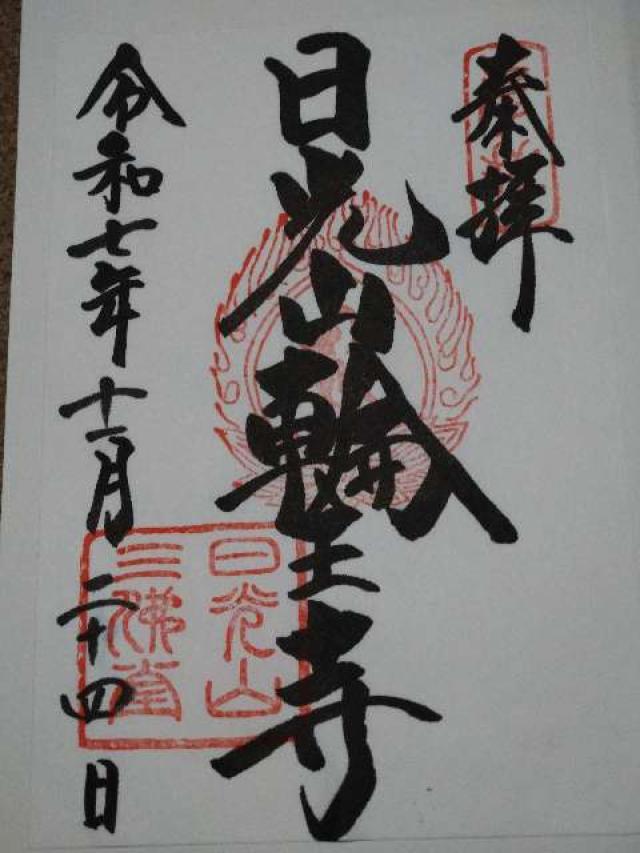 奉拝
日光山輪王寺
令和七年十一月二十四日
日光山
三佛堂